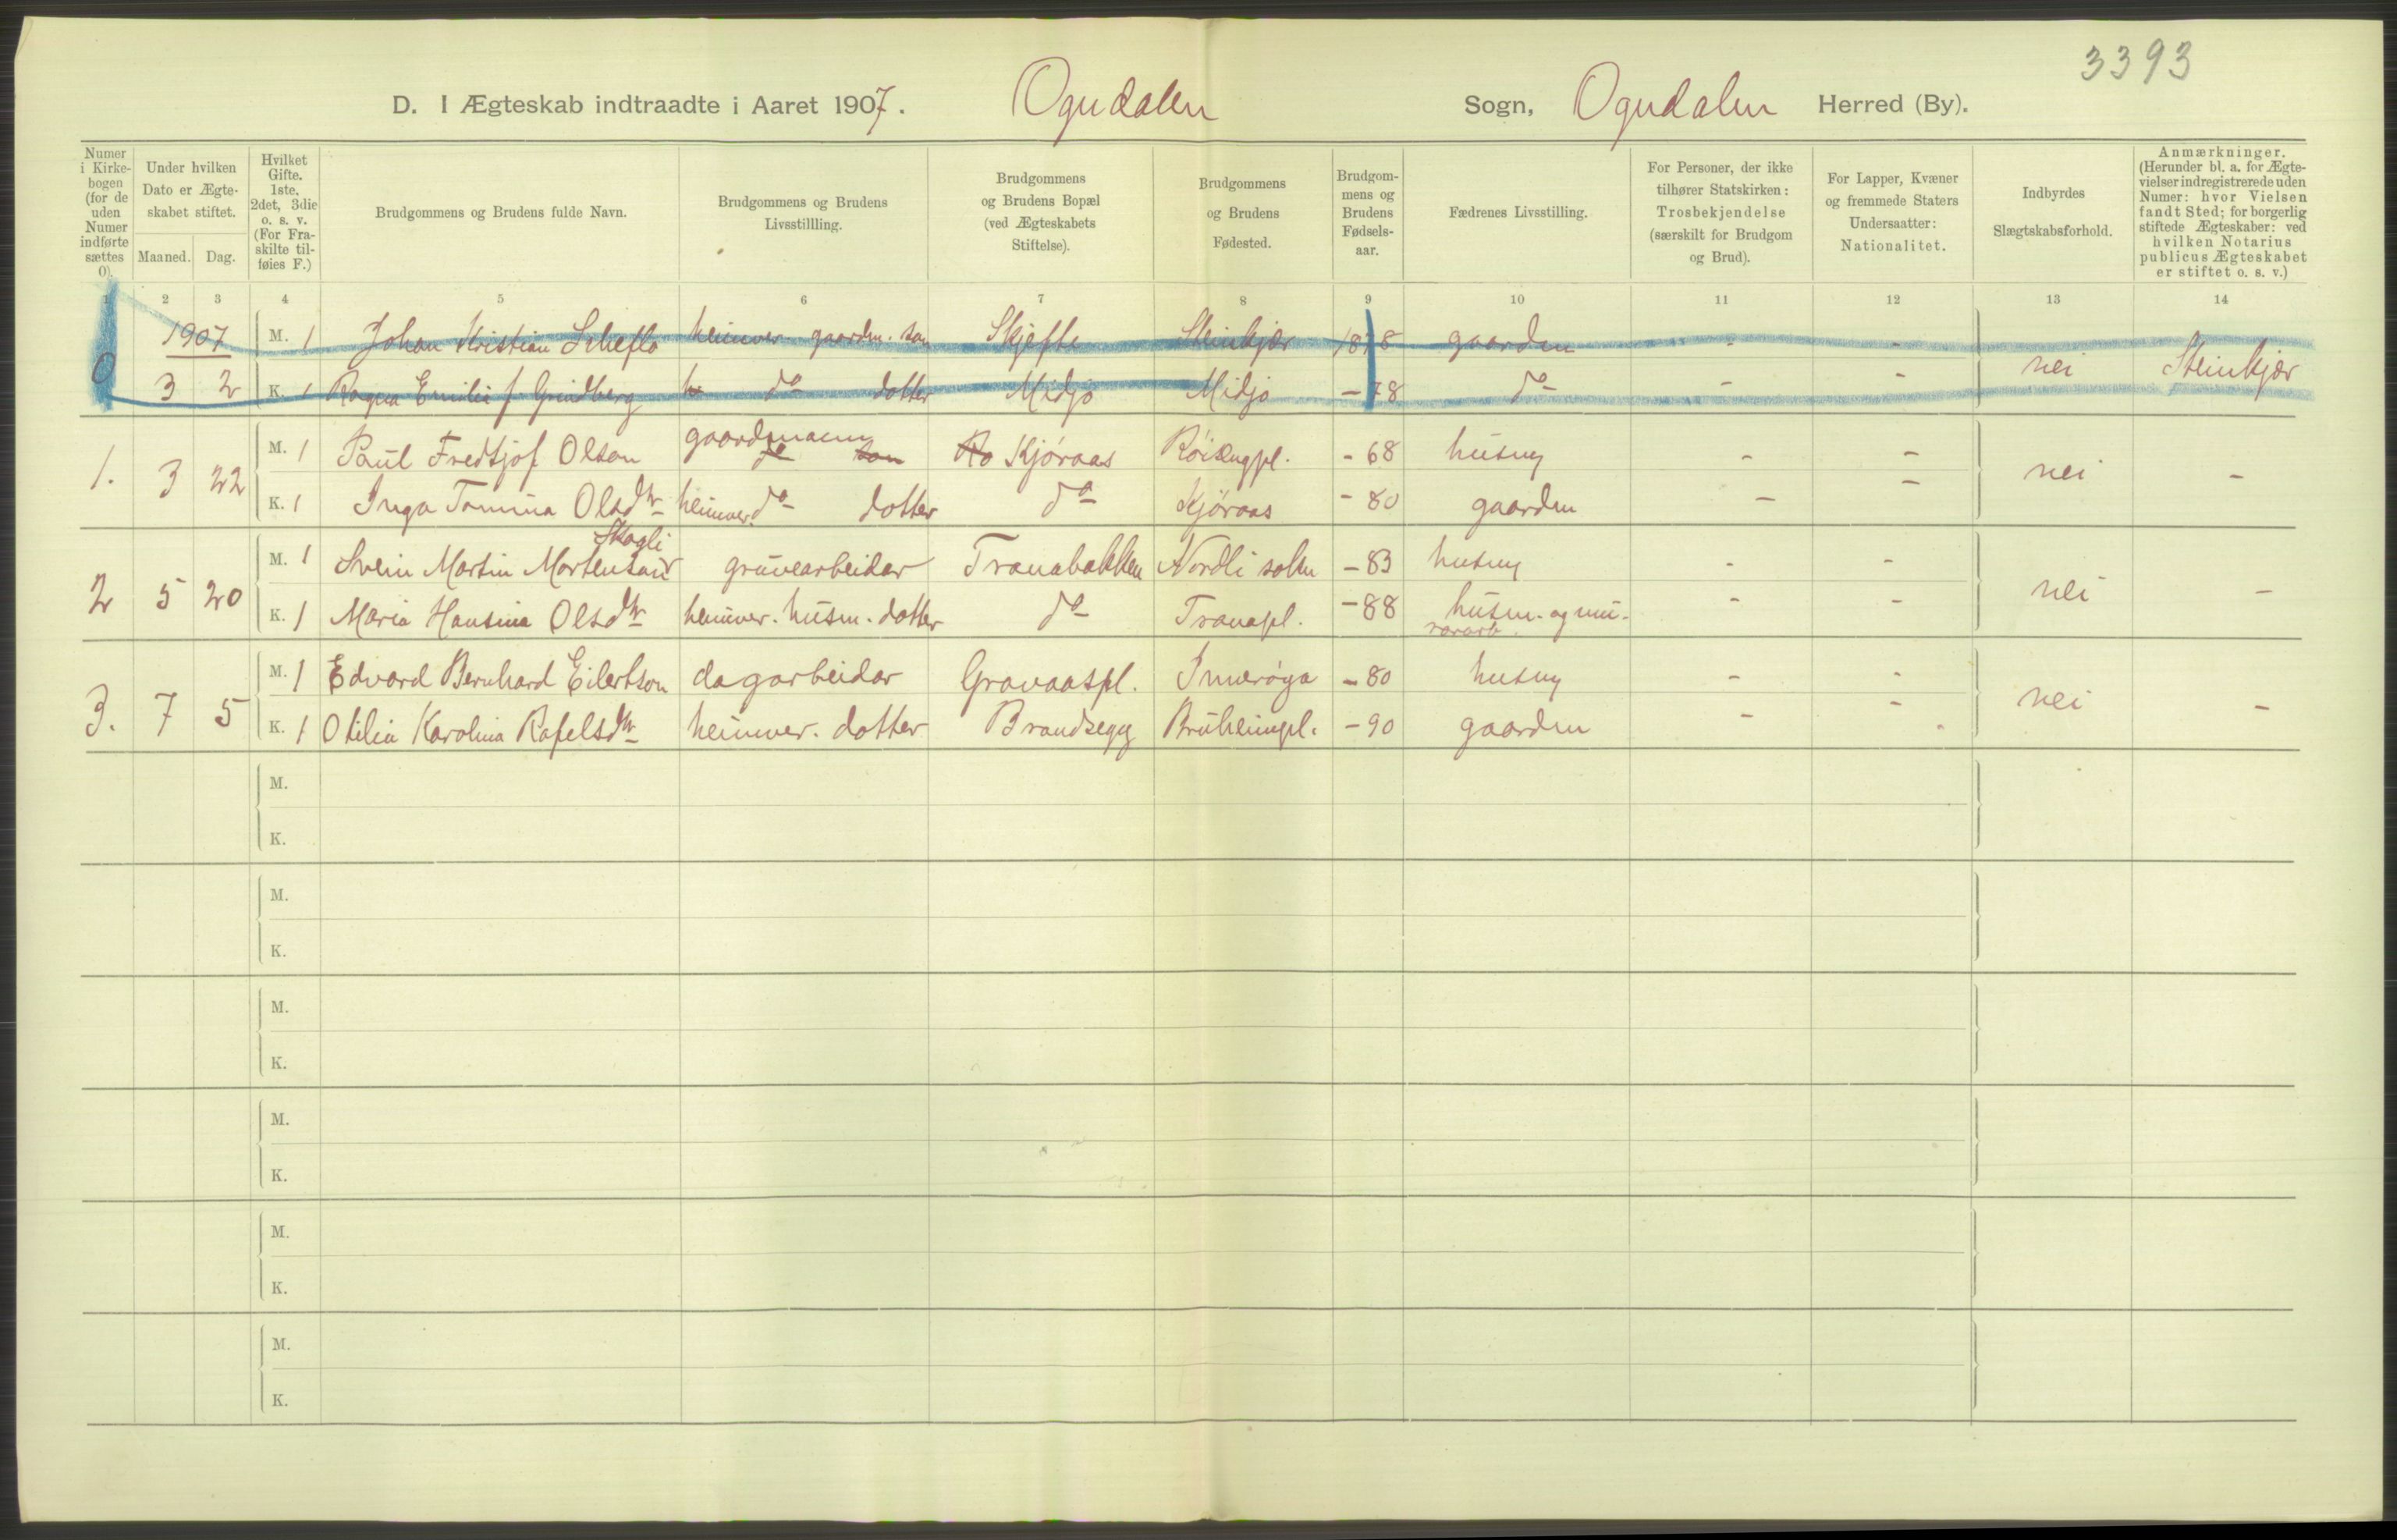 3393
D. I Ægteskab indtraadte i Aaret 1907. Ogndalen Sogn, Ogndalen Herred (By).
Numer i Kirkebogen (for de uden Numer indførte sættes 0).
Under hvilken Dato er Ægteskabet stiftet.
Maaned. Dag.
Hvilket Gifte. 1ste, 2det, 3die o. s. v. (For Fraskilte tilføies F.)
Brudgommens og Brudens fulde Navn.
Brudgommens og Brudens Livsstillling.
Brudgommens og Brudens Bopæl (ved Ægteskabets Stiftelse).
Brudgommens og Brudens Fødested.
Brudgommens og Brudens Fødselsaar.
Fædrenes Livsstilling.
For Personer, der ikke tilhører Statskirken: Trosbekjendelse (særskilt for Brudgom og Brud).
For Lapper, Kvæner og fremmede Staters Undersaatter: Nationalitet.
Indbyrdes Slægtskabsforhold.
Anmærkninger. (Herunder bl. a. for Ægtevielser indregistrerede uden Numer: hvor Vielsen fandt Sted; for borgerlig stiftede Ægteskaber: ved hvilken Notarius publicus Ægteskabet er stiftet o. s. v.)
1 2 3 4 5 6 7 8 9 10 11 12 13 14
1907 M. 1 Johan Kristian heimver. gaardm. son Skjefte Steinkjær 1878 gaardm - -
0 3 2 K. 1 Ragna Emilia f Grindberg h do dotter Midjo Midjo - 78 do - - nei Steinkjær
M. 1 Paul Fredtjof Olson gaardmann do son Ro Kjøraas Røisengpl. - 68 husm - -
1. 3 22 K. 1 Inga Tomina Olsdtr heimver. do dotter do Kjøraas - 80 gaardm - - nei -
Skogli
M. 1 Svein Martin Mortenson gruvearbeidar Tranabakken Nordli sokn - 83 husm - -
2 5 20 K. 1 Maria Hansina Olsdtr heimver. husm. dotter do Tranapl. - 88 husm. og mu- - - nei -
rararb.
M. 1 Edvard Bernhard Eilertson dagarbeidar Gravaaspl. Inderøya - 80 husm - -
3. 7 5 K. 1 Otilia Karolina Rafelsdtr heimver. dotter Brandsegg Bruheimpl. - 90 gaardm - - nei -
M.
K.
M.
K.
M.
K.
M.
K.
M.
K.
M.
K.